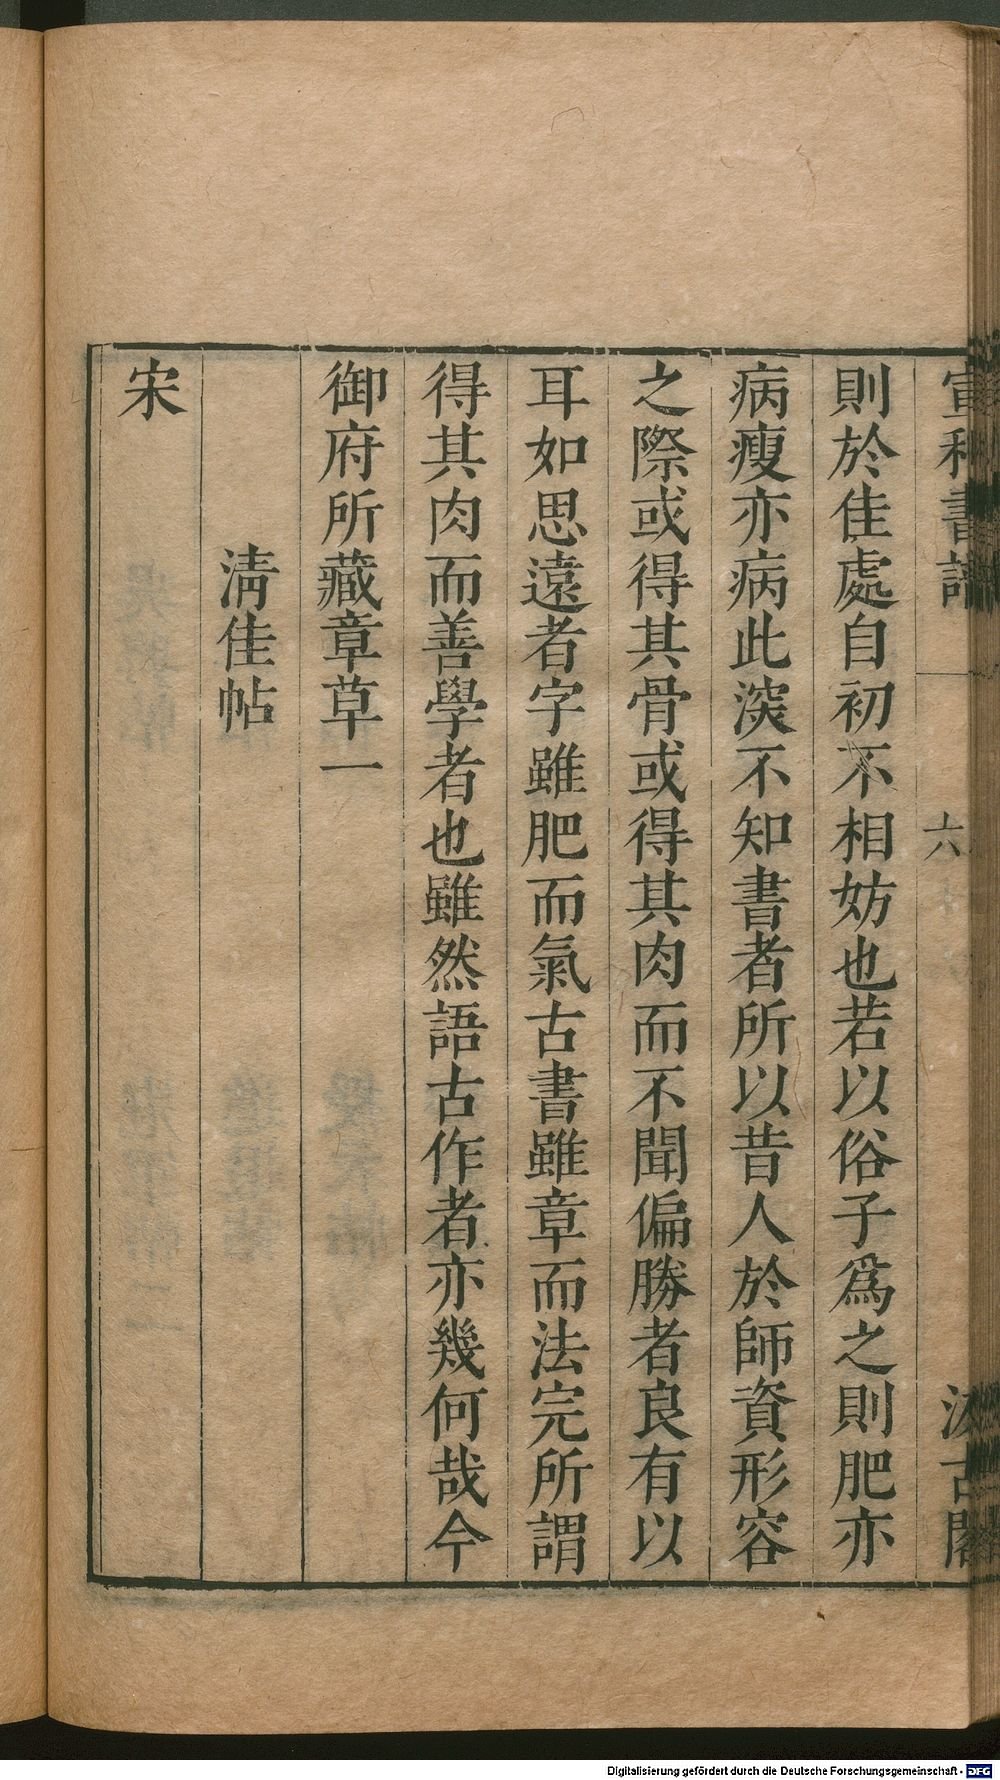 宣和書譜 六 汲古閣
則於佳處自初不相妨也若以俗子爲之則肥亦
病瘦亦病此深不知書者所以昔人於師資形容
之際或得其骨或得其肉而不聞偏勝者良有以
耳如思遠者字雖肥而氣古書雖章而法完所謂
得其肉而善學者也雖然語古作者亦幾何哉今
御府所藏章草一
淸佳帖
宋
Digitalisierung gefördert durch die Deutsche Forschungsgemeinschaft - DFG